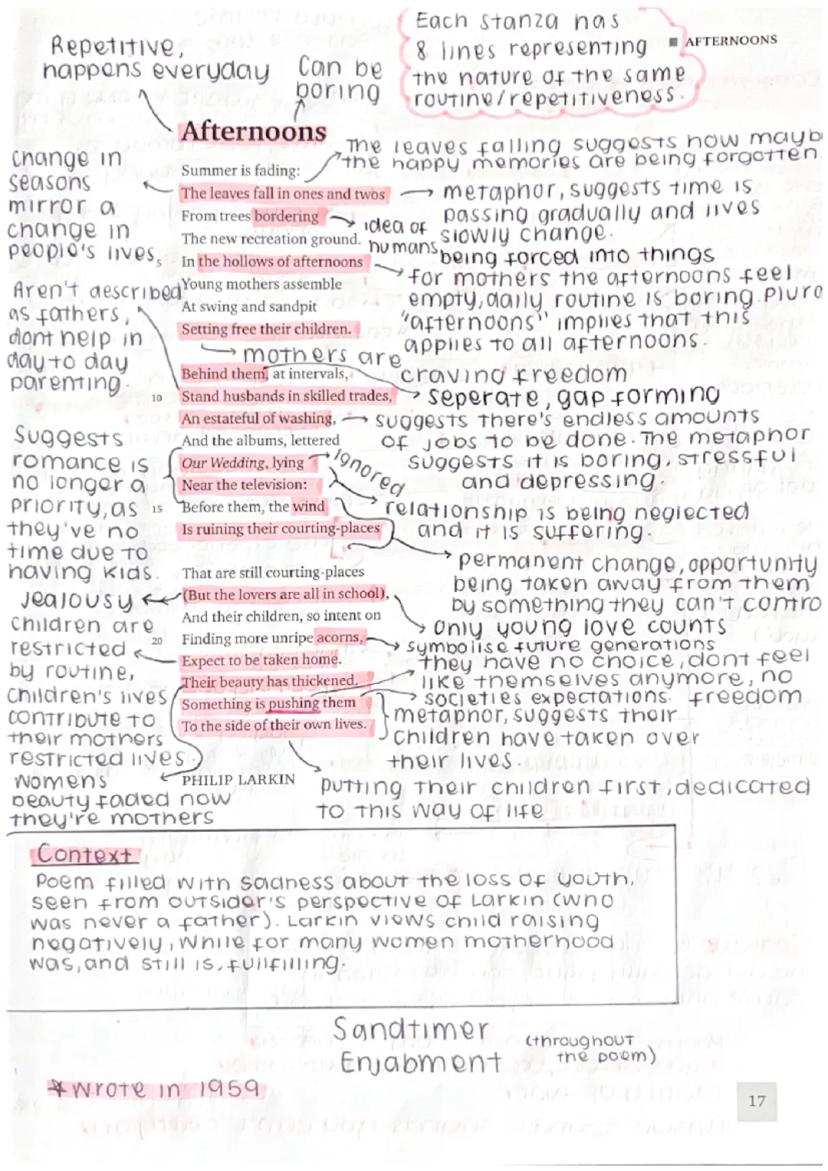 Each stanza has
8 lines representing
the nature of the same
routine/repetitiveness.
■ AFTERNOONS
Repetitive,
happens everyday
Can be
boring
Afternoons
Summer is fading:
The leaves fall in ones and twos
From trees bordering
The new recreation ground.
In the hollows of afternoons
Young mothers assemble
At swing and sandpit
Setting free their children.
Behind them, at intervals,
10 Stand husbands in skilled trades,
An estateful of washing,
And the albums, lettered
Our Wedding, lying
Near the television:
15 Before them, the wind
Is ruining their courting-places
That are still courting-places
(But the lovers are all in school),
And their children, so intent on
20 Finding more unripe acorns,
Expect to be taken home.
Their beauty has thickened.
Something is pushing them
To the side of their own lives.
PHILIP LARKIN
change in
seasons
mirror a
change in
people's lives.
Aren't described
as fathers,
dont help in
day to day
parenting.
Suggests
romance is
no longer a
priority, as
they've no
time due to
having kids.
Jealousy
children are
restricted
by routine,
children's lives
contribute to
their mothers
restricted lives.
Womens
beauty faded now
they're mothers
The leaves falling suggests how mayb
the happy memories are being forgotten.
metaphor, suggests time is
passing gradually and lives
slowly change.
idea of
humans
being forced into things
for mothers the afternoons feel
empty, daily routine is boring. Plura
"afternoons" implies that this
applies to all afternoons.
mothers are
craving freedom
seperate, gap forming
suggests there's endless amounts
of jobs to be done. The metaphor
suggests it is boring, stressful
and depressing.
ignored
relationship is being neglected
and it is suffering.
permanent change, opportunity
being taken away from them
by something they can't contro
only young love counts
symbolise future generations
they have no choice, dont feel
like themselves anymore, no
freedom
societies expectations.
metaphor, suggests their
children have taken over
their lives.
putting their children first, dedicated
to this way of life
Context
Poem filled with sadness about the loss of youth,
seen from outsider's perspective of Larkin (who
was never a father). Larkin views child raising
negatively, while for many women motherhood
was, and still is, fulfilling.
Sandtimer
Enjabment
(throughout
the poem)
*Wrote in 1959
17